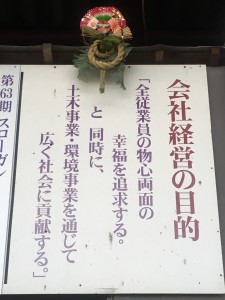 会社経営の目的
「全従業員の物心両面の
幸福を追求する。
と同時に、
土木事業・環境事業を通じて
広く社会に貢献する。」
第63期 スローガン